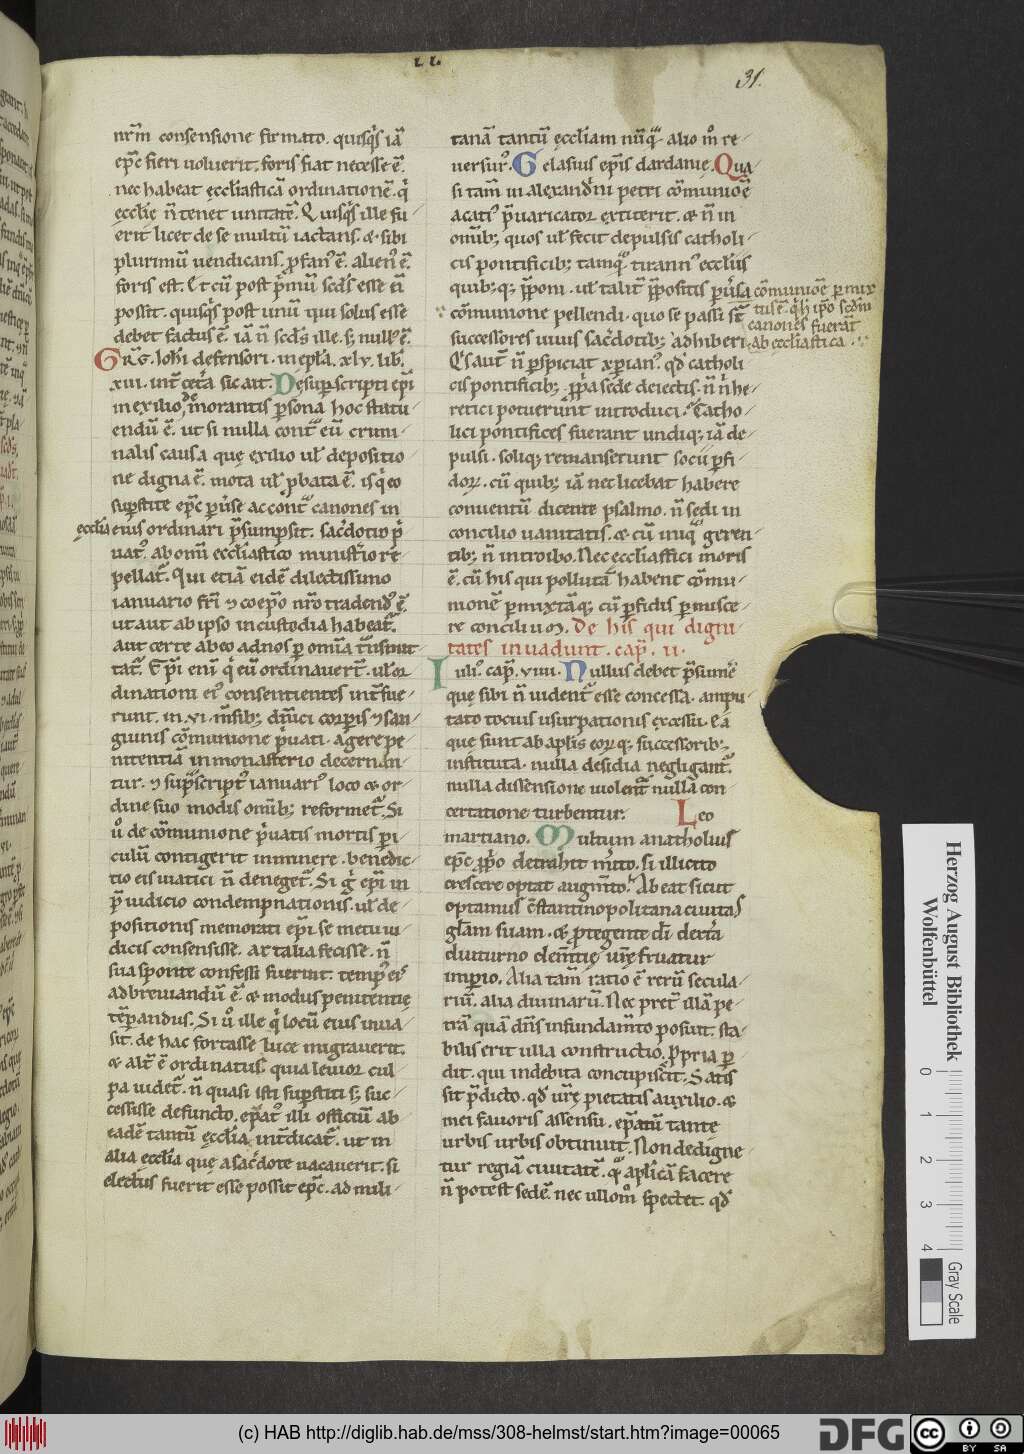 31.
nrm̄ consensione firmato. quisqs iā
epc̄ fieri uoluerit. foris fiat necesse ē.
nec habeat ęccliasticā ordinationē. q
ęcclię n̄ tenet unitatē. Quisqs ille fu
erit licet de se multū iactans. & sibi
plurimū uendicans. pfan' ē. alien' ē.
foris est. Et cū post pmū scds esse n̄
possit. quisqs post unū qui solus esse
debet factus ē. iā n̄ scds ille. s; null' ē.
Grg. Iohi defensori. in epla. xlv. lib.
xiii. int cetera sic ait. De supscripti epi
in exilio morantis psona hoc statu
endū ē. ut si nulla cont eū crimi
nalis causa quę exilio ul depositio
ne digna ē. mota ul pbata ē. is q eo
supstite epc puse ac cont canones in
ęcclia eius ordinari psumpsit. sacdotio p
uat'. ab omi ecclastico ministio re
pellat. Qui etiā eidē dilectissimo
ianuario fri & coepo nro tradend' ē.
ut aut ab ipso in custodia habeat.
aut certe ab eo ad nos p omia tnsmit
tat. Epi eni q eū ordinauert. ul or
dinationi ei' consentientes int fue
runt. in vi. msib; dnici corpis & san
guinis cōmunione puati. agere pe
nitentiā in monasterio decernan
tur. & supscript' ianuari' loco & or
dine suo modis omib; reformet. Si
u° de cōmunione puatis mortis pi
culū contigerit inminere. benedic
tio eis uiatici n̄ deneget. Si g epi in
p iudicio condempnationis. ul de
positionis memorati epi se metu iu
dicis consensisse. at talia fecisse. n̄
sua sponte confessi fuerint. temp' eis
adbreuiandū ē. & modus penitentię
tēpandus. Si u° ille q locū eius inua
sit. de hac fortasse luce migrauerit.
& alt ē ordinatus. quia leuior cul
pa uidet. n̄ quasi isti supstiti s; suc
cessisse defuncto. epat' illi officiū ab
eadē tantū ęcclia. intdicat. ut in
alia ecclia que a sacdote uacauerit. si
electus fuerit esse possit epc. ad mili
tanā tantū ęccliam nūq. alio m° re
uersur'. Gelasius epis dardanie. Qua
si tam in alexandni petri cōmunioē
acati' puaricator extiterit. & n̄ in
omib; quos ul fecit depulsis catholi
cis pontificib; tamq tirann' ecclesiis
quib; q; pponi. ul talit ppositis puersa cōmunioē pmix
tus ē. q hi ipo sedm
canones fuerat
ab ecclastica.
cōmunione pellendi. quo se passi st
successores uiuis sacdotib; adhiberi.
Qs aut n̄ pspiciat xpian'. qd catholi
cis pontificib; ppa sede deiectis. n̄ n he
retici potuerunt introduci. Catho
lici pontifices fuerant undiq; iā de
pulsi. soliq; remanserunt socii pfi
dor. cū quib; iā nec licebat habere
conuentū dicente psalmo. n̄ sedi in
concilio uanitatis. & cū iniq geren
tib; n̄ introibo. Nec eccliastici moris
ē. cū his qui pollutā habent cōmu
nionē pmixtāq; cū pfidis pmisce
re concilium. De his qui digni
tates inuadunt. cap. ii.
Iuli' cap. viiii. Nullus debet psume
que sibi n̄ uident esse concessa. ampu
tato tocius usurpationis excessu. Ea
que sunt ab aplis eorq; successorib;
instituta. nulla desidia negligant.
nulla dissensione uiolent nulla con
certatione turbentur. Leo
martiano. Multum anatholius
epc ppo detrahit mito. si illicito
crescere optat augmto. Habeat sicut
optamus cstantinopolitana ciuitas
glam suam. & ptegente di dextra
diuturno clemtię urę fruatur
impio. Alia tam ratio ē rerū secula
riū. alia diuinarū. Nec pret illā pe
trā quā dns in fundamto posuit. sta
bilis erit ulla constructio. Ppria p
dit. qui indebita concupiscit. Satis
sit pdicto. qd urę pietatis auxilio. &
mei fauoris assensu. epatū tante
urbis obtinuit. Non dedigne
tur regiā ciuitatē. q aplicā facere
n̄ potest sedē. nec ullom° spectet. qd
Herzog August Bibliothek
Wolfenbüttel
0 1 2 3 4
Gray Scale
(c) HAB http://diglib.hab.de/mss/308-helmst/start.htm?image=00065
DFG
cc BY SA